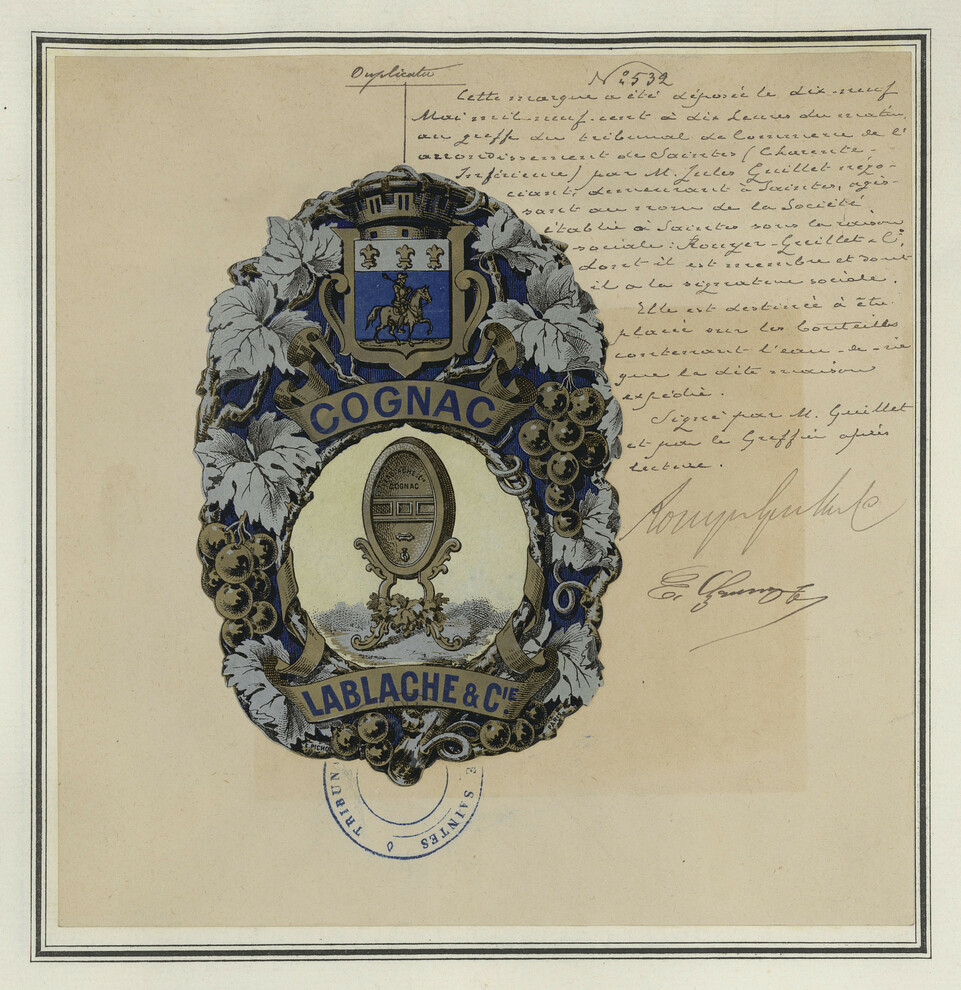 Duplicata
N° 2532
Cette marque a été déposée le dix-neuf
Mai mil neuf cent à dix heures du matin,
au greffe du tribunal de Commerce de l'
arrondissement de Saintes (Charente-
Inférieure) par M. Jules Guillet négo-
ciant, demeurant à Saintes, agis-
sant au nom de la Société
établie à Saintes sous la raison
sociale: Rouyer-Guillet & Cie,
dont il est membre et dont
il a la signature sociale.
Elle est destinée à être
placée sur les bouteilles
contenant l'eau-de-vie
que la dite maison
expédie.
Signé par M. Guillet
et par le Greffier après
lecture.
Rouyer Guillet & Cie
COGNAC
LABLACHE & CIE
COGNAC
LABLACHE & CIE
TRIBUN
E SAINTES